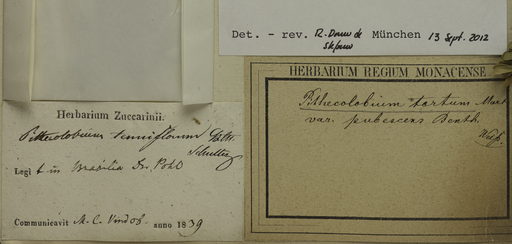 Det. - rev. München 13 Sept. 2012
Herbarium Zuccarinii.
Pithecolobium tenuiflorum
Legit in Brasilia Dr. Pohl
Communicavit M. C. Vindob. anno 1839
HERBARIUM REGIUM MONACENSE
Pithecolobium tortum Mart
var. pubescens Benth.